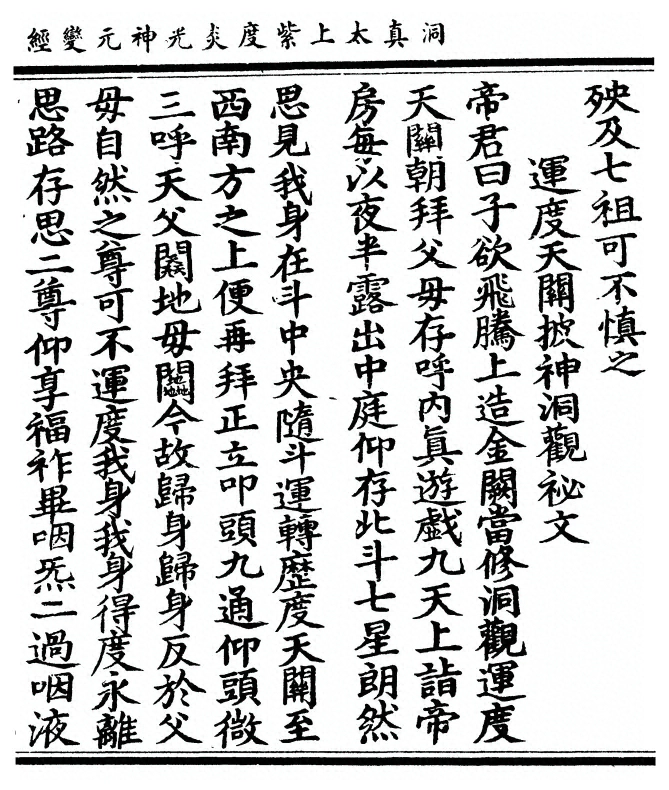 洞真太上紫度炎光神元變經
殃及七祖可不慎之
運度天關披神洞觀祕文
帝君曰子欲飛騰上造金闕當修洞觀運度
天關朝拜父毋存呼內真遊戲九天上詣帝
房每以夜半露出中庭仰存北斗七星朗然
思見我身在斗中央隨斗運轉歷度天關至
西南方之上便再拜正立叩頭九通仰頭微
三呼天父地毋今故歸身歸身反於父
毋自然之尊可不運度我身我身得度永離
思路存思二尊仰享福祚畢咽炁二過咽液